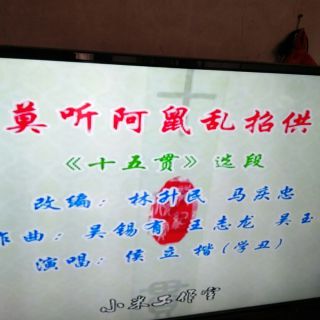 莫听阿鼠乱招供
《十五贯》选段
改编：林升民 马庆忠
作曲：吴锡有 王志龙 吴玉
演唱：侯立楷（学丑）
小米工作室